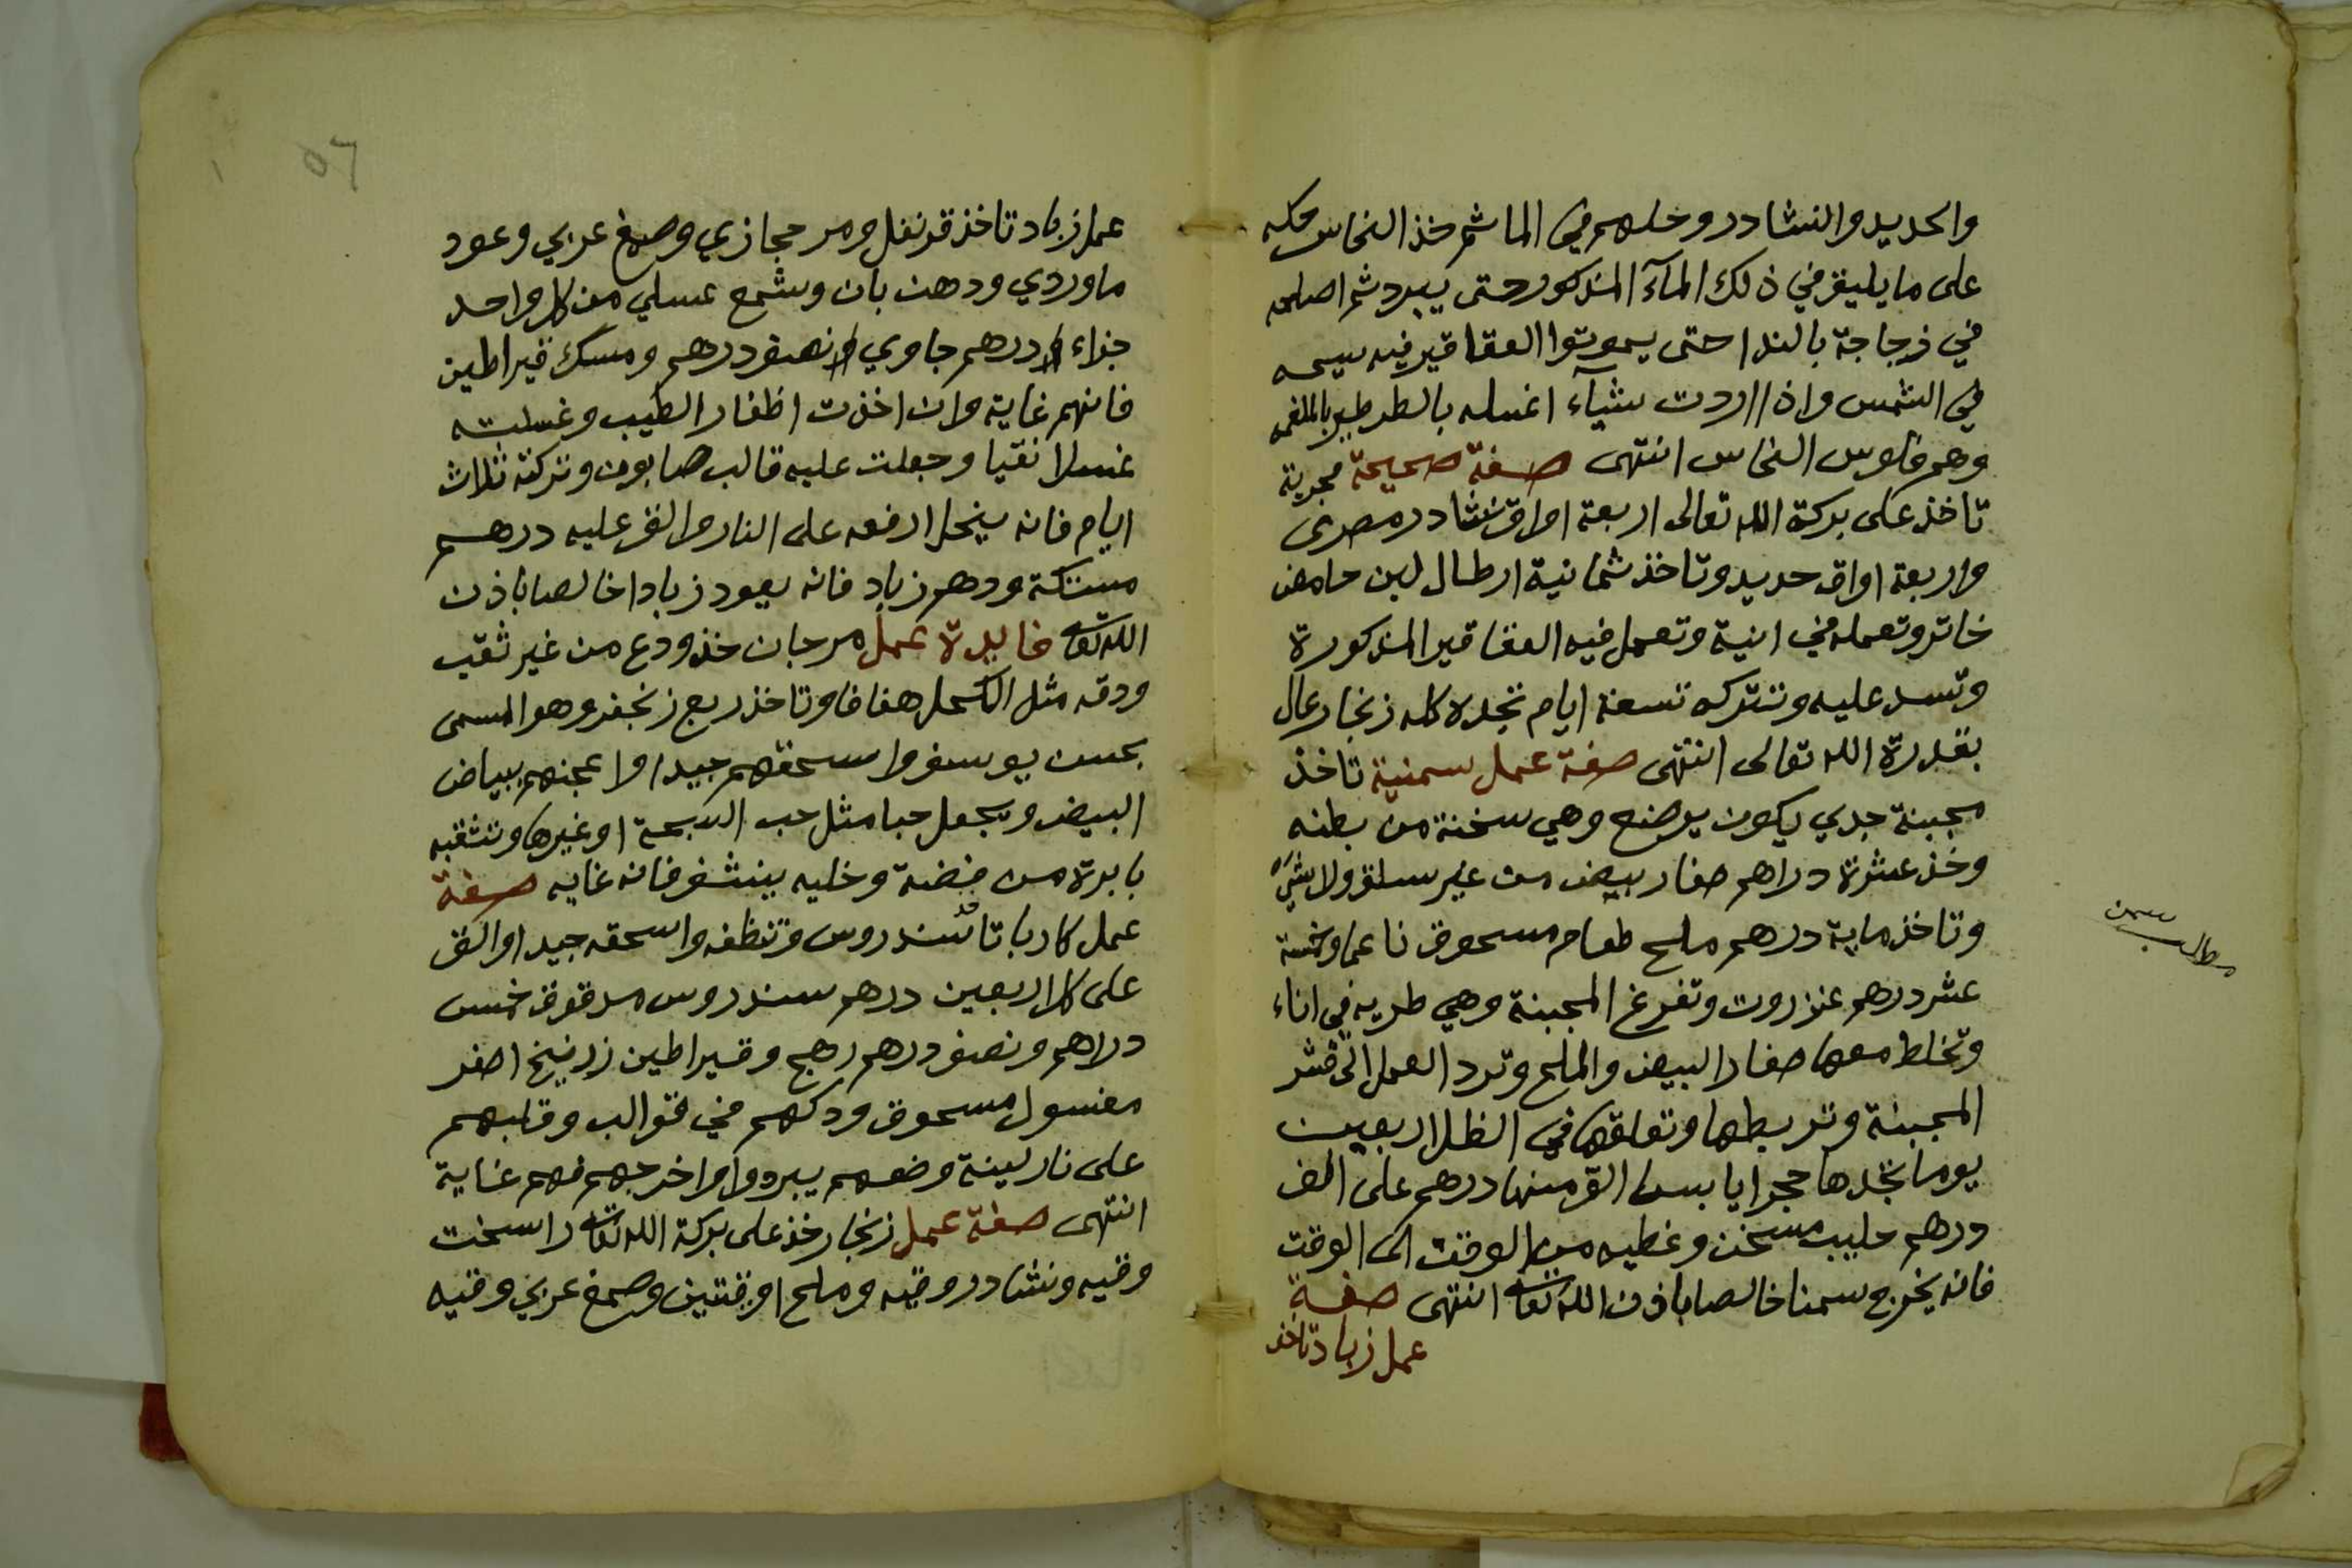 والحديد والنشادر وخليهم في الما ثم خذ النحاس حكه
على ما يليق في ذلك المآء المذكور حتى يبرد ثم اصلحه
في زجاجة بالندا حتى يموتوا العقاقير فيه سيحه
في الشمس واذا اردت شيآء اغسله بالطرطير بالملغمه
وهم فلوس النحاس انتهى صفة صحيحة مجربة
تاخذ على بركة الله تعالى اربعة اواق نشادر مصرى
واربعة اواق حديد وتاخذ ثمانية ارطال لبن حامض
خاتر وتعمله في انية وتعمل فيه العقاقير المذكورة
وتسد عليه وتتركه تسعة ايام تجده كله زنجار عال
بقدرة الله تعالى انتهى صفة عمل سمنية تاخذ
مجبنة جدي يكون يرضع وهي سخنة من بطنه
وخذ عشرة دراهم صفار بيض من غير سلق ولا شي
وتاخذ ماية درهم ملح طعام مسحوق ناعما وخمسة
عشر درهم عنزروت وتفرغ المجبنة وهي طريه في اناء
وتخلط معها صفار البيض والملح وترد العمل الى قشر
المجبنة وتربطها وتعلقها في الظل اربعين
يوما تجدها حجرا يابسا الق منها درهم على الف
درهم حليب مسخن وغطيه من الوقت الى الوقت
فانه يخرج سمنا خالصا باذن الله تعا انتهى صفة
عمل زباد تاخذ
مطالب سمن
٥٦
عمل زباد تاخذ قرنفل ومر حجازي وصمغ عربي وعود
ماوردي ودهن بان وشمع عسلي من كل واحد
جزاء درهم جاوي نصف درهم ومسك قيراطين
فانهم غاية وان اخذت اظفار الطيب وغسلته
غسلا نقيا وجعلت عليه قالب صابون وتركته ثلاث
ايام فانه ينحل ارفعه على النار والق عليه درهم
مستكة ودهم زباد فانه يعود زبادا خالصا باذن
الله تعا فايدة عمل مرجان خذ ودع من غير ثقب
ودقه مثل الكحل هفافا وتاخذ ربع زنجفر وهو المسمى
بحسن يوسف واسحقهم جيدا واعجنهم ببياض
البيض ويجعل حبا مثل حب السبحة او غيرها وتثقبه
بابرة من فضة وخليه ينشف فانه غايه صفة
عمل كاربا تاخذ سندروس وتنظفه واسحقه جيدا والق
على كل اربعين درهم سندروس مدقوق خمس
دراهم ونصف درهم رهج وقيراطين زرنيخ اصفر
مغسول مسحوق ودكهم في قوالب وقلبهم
على نار لينة وضعهم يبردوا واخرجهم فهم غاية
انتهى صفة عمل زنجار خذ على بركة الله تعا راسخت
وقيه ونشادر وقيه وملح اوقتين وصمغ عربي وقيه